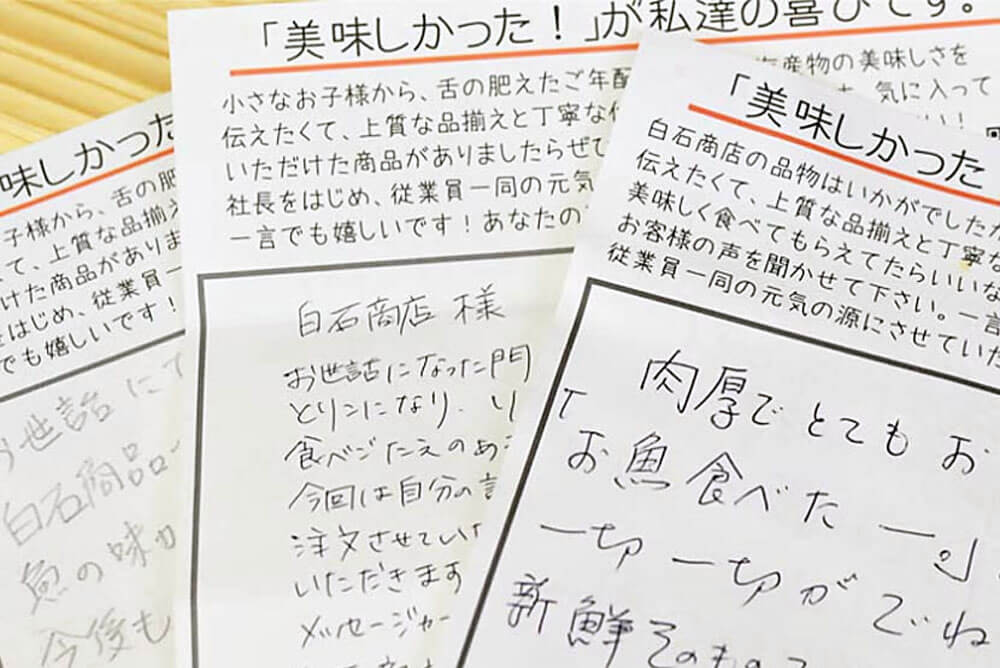 味しかった
子様から、舌の肥
て、上質な品揃え
けた商品がありま
をはじめ、従業員一
でも嬉しいです!
お世話に
白石商品
魚の味
今後も
「美味しかった!」が私達の喜びです。
小さなお子様から、舌の肥えたご年配
伝えたくて、上質な品揃えと丁寧な
いただけた商品がありましたらぜひ
社長をはじめ、従業員一同の元気
一言でも嬉しいです!あなたの
白石商店 様
お世話になった門
とリンになり、
食べごたえのある
今回は自分の
注文させてい
いただきます
メッセージャー
海産物の美味しさを
気に入って
「美味しかった
白石商店の品物はいかがでしたか
伝えたくて、上質な品揃えと丁寧な
美味しく食べてもらえてたらいいな
お客様の声を聞かせて下さい。一言
従業員一同の元気の源にさせていた
肉厚で とても お
「お魚食べたー。」
一切一切が でね
新鮮そのもので